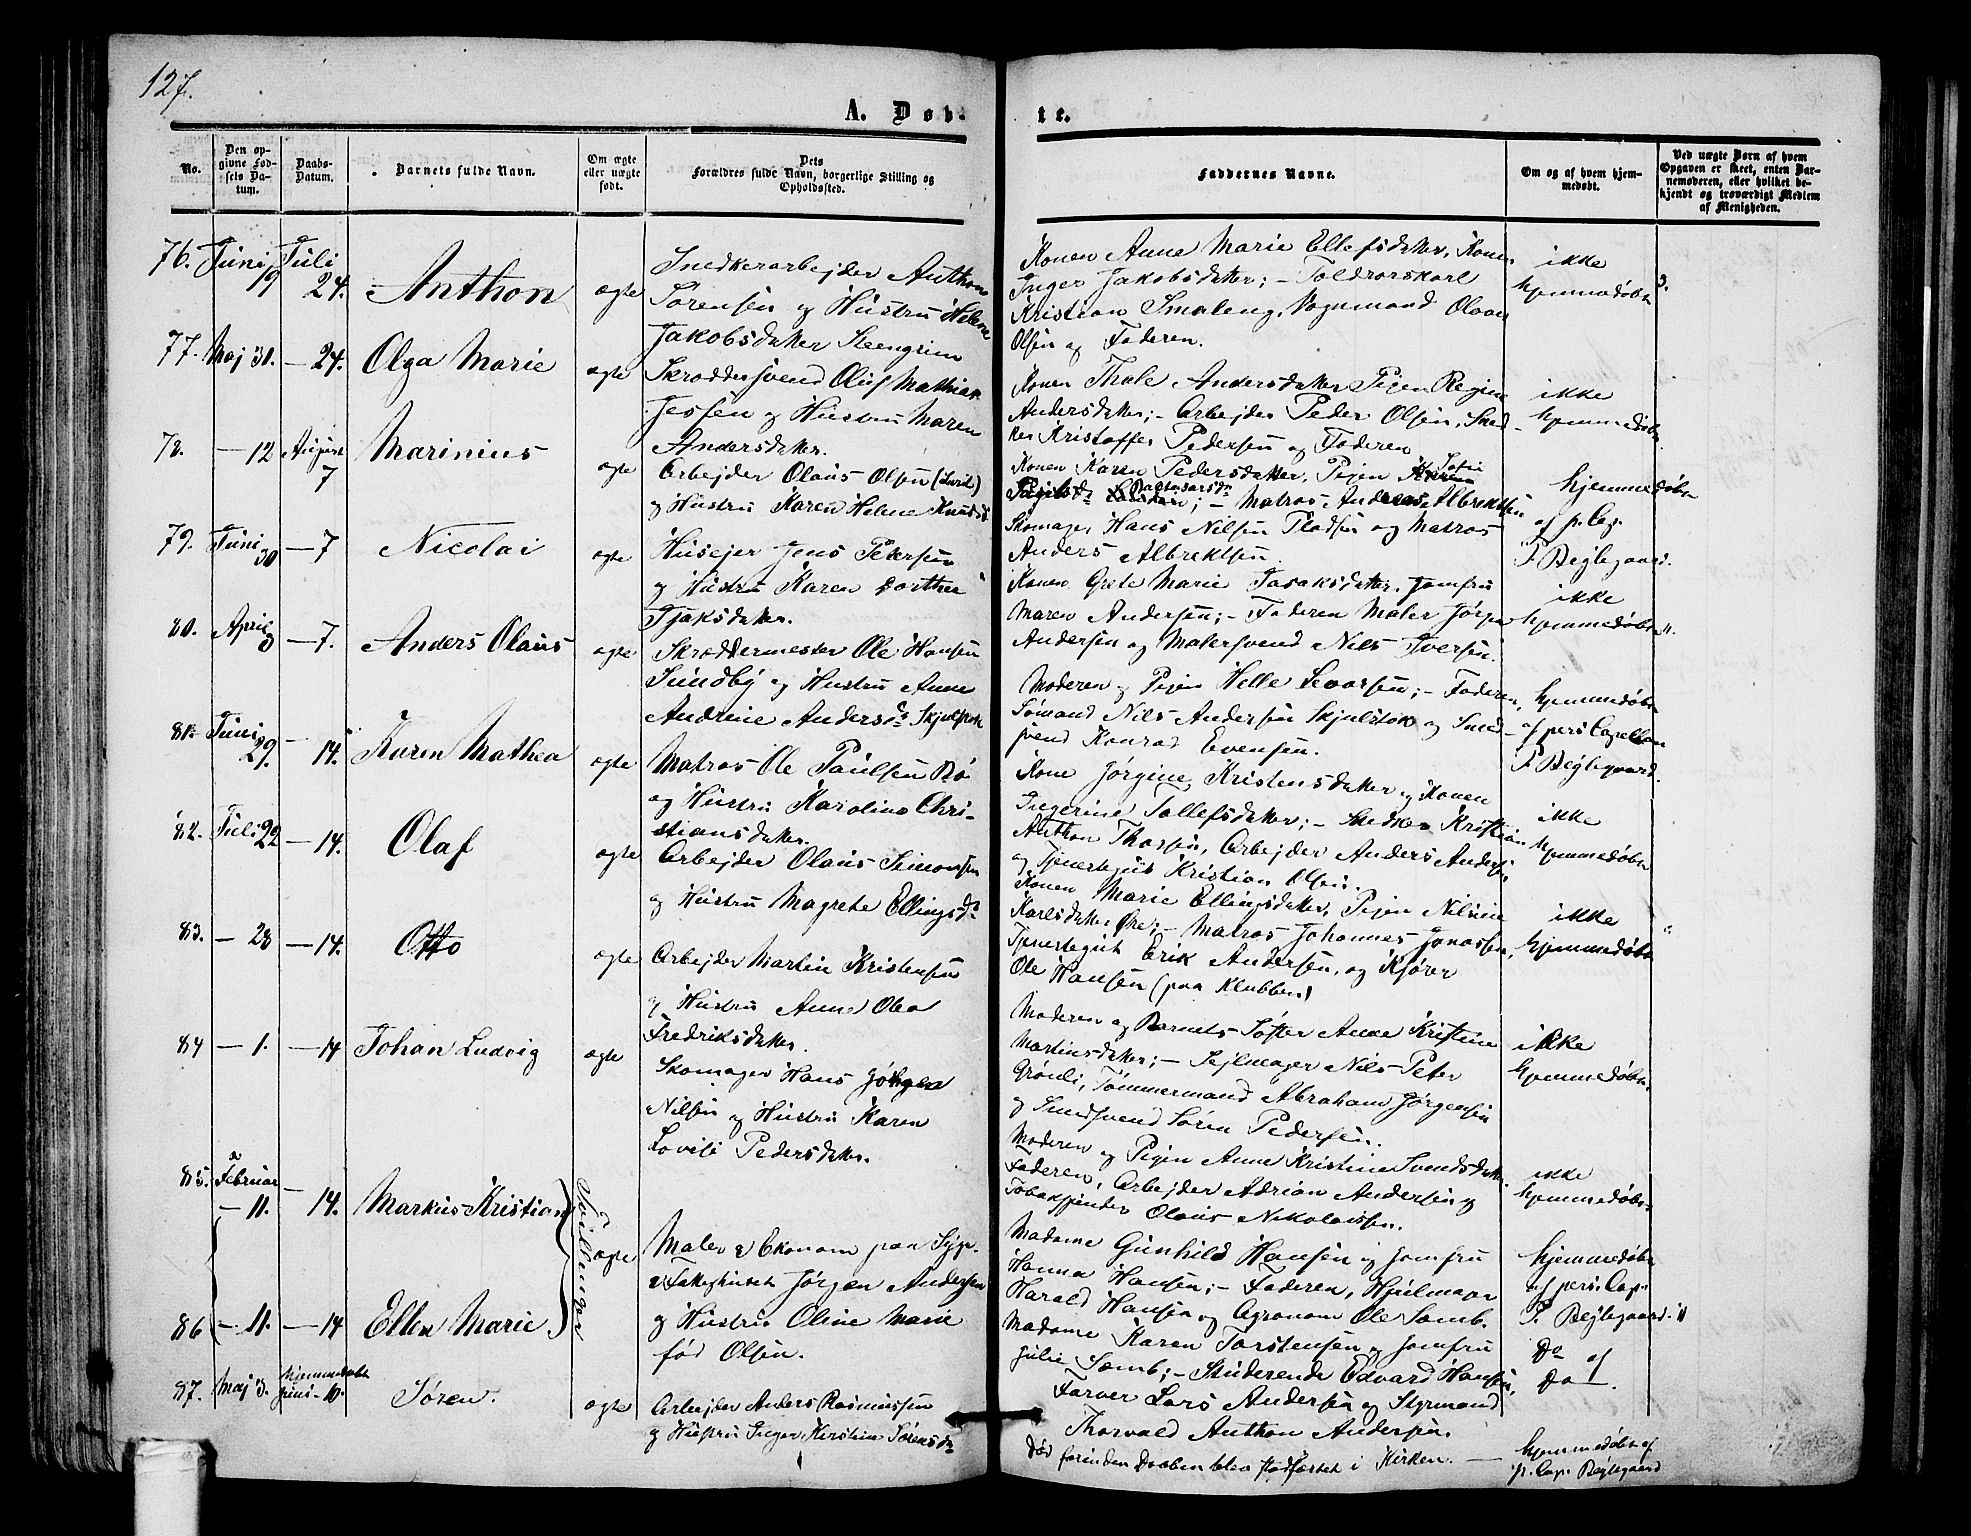 127.
A. Døb-
te.
No.
Den op-
givne Fød-
sels Da-
tum.
Daabs-
Datum.
Barnets fulde Navn.
Om ægte
eller uægte
født.
Dets
Forældres fulde Navn, borgerlige Stilling og
Opholdssted.
Faddernes Navne.
Om og af hvem hjem-
medøbt.
Ved uægte Børn af hvem
Opgaven er skeet, enten Bar-
nemoderen, eller hvilket be-
kjendt og troværdigt Medlem
af Menigheden.
76. Juni 19 Juli 24. Anthon ægte
Snedkerarbejder Anthon
Sørensen og Hustru Helene
Jakobsdatter Steengrim
Konen Anne Marie Ellefsdatter, Konen
Inger Jakobsdatter; - Toldrorskarl
Kristian Smaleng, Vognmand Olaus
Olsen og Faderen.
ikke
hjemmedøbt
77. Maj 31. - 24. Olga Marie ægte
Skræddersvend Oluf Mathias
Jessen og Hustru Maren
Andersdatter.
Konen Thale Andersdatter, Pigen Regine
Andersdatter; - Arbejder Peder Olsen, Sned-
ker Kristoffer Pedersen og Faderen
ikke
hjemmedøbt
78. - 12 August 7 Marinius ægte
Arbejder Olaus Olsen
og Hustru Karen Helene
Konen Karen Pedersdatter, Pigen Sofie
Baltasarsdr; - Matros Anders Albrektsen
Skomager Hans Nilsen og Matros
Anders Albrektsen.
hjemmedøbt
af p. Cap.
P. Bøglegaard.
79. Juni 30 - 7 Nicolai ægte
Husejer Jens Petersen
og Hustru Karen Dorthea
Isaksdatter.
Konen Grete Marie Isaksdatter, Jomfru
Maren Andersen; - Faderen Maler Jørgen
Andersen og Malersvend Nils Iversen.
ikke
hjemmedøbt
80. April 3 - 7. Anders Olaus ægte
Skræddermester Ole Hansen
Sundby og Hustru Anne
Andrine Andersdr Skjulstok
Moderen og Pigen Helle Sevarsen; - Faderen,
Sømand Nils Andersen Skjulstok og Smed-
svend Konrad Evensen.
hjemmedøbt
af pers Capellan
P. Bøglegaard.
81. Juni 29. - 14. Karen Mathea ægte
Matros Ole Paulsen Bø
og Hustru Karoline Chri-
stiansdatter.
Kone Jørgine Kristensdatter og Konen
Ingerine Tollefsdatter; - Snedker Kristian
Anthon Thossen, Arbejder Anders Anders
og Tjenestegut Kristian Olsen.
ikke
hjemmedøbt
82. Juli 22 - 14. Olaf ægte
Arbejder Olaus Simonsen
og Hustru Magrete Ellingsdr
Konen Marie Ellingsdatter, Pigen Nilsine
Karlsdatter Øre; - Matros Johannes Jonassen,
Tjenestegut Erik Andersen, og Kjører
Ole Hansen (paa Klubben)
ikke
hjemmedøbt
83. - 28 - 14. Otto ægte
Arbejder Martin Kristensen
og Hustru Anne Olea
Fredriksdatter.
Moderen og Barnets Søster Anne Kristine
Martinsdatter; - Sejlmager Nils Peter
Grønli, Tømmermand Abraham Jørgensen
og Smedsvend Søren Pedersen.
ikke
hjemmedøbt
84 - 1. - 14 Johan Ludvig ægte
Skomager Hans Jørgen
Nilsen og Hustru Karen
Lovise Pedersdatter.
Moderen og Pigen Anne Kristine Svendsdatter,
Faderen, Arbejder Adrian Andersen og
Tobakspinder Olaus Nikolaisen.
ikke
hjemmedøbt
85. Februar - 11. - 14. Markus Kristian
Tvillinger
ægte
Maler & Ekonom paa Syge-
& Fattighuset Jørgen Andersen
og Hustru Oline Marie
fød Olsen.
Madame Gunhild Hansen og Jomfru
Hanna Hansen; - Faderen, Hjulmager
Harald Hansen og Agronom Ole Somb.
hjemmedøbt
af pers. Cap.
P. Bøglegaard.
86 - 11. - 14 Ellen Marie
Madame Karen Torstensen og Jomfru
Julie Somb; - Studerende Edvard Hansen,
Farver Lars Andersen og Styrmand
Thorvald Anthon Andersen.
Do af
Do
87. Maj 3. hjemmedøbt Juni - 10. Søren. ægte
Arbejder Anders Rasmussen
og Hustru Inger Kirstine Sørensdr
Død forinden Daaben blev stadfæstet i Kirken. -
hjemmedøbt af
p. Cap. Bøglegaard